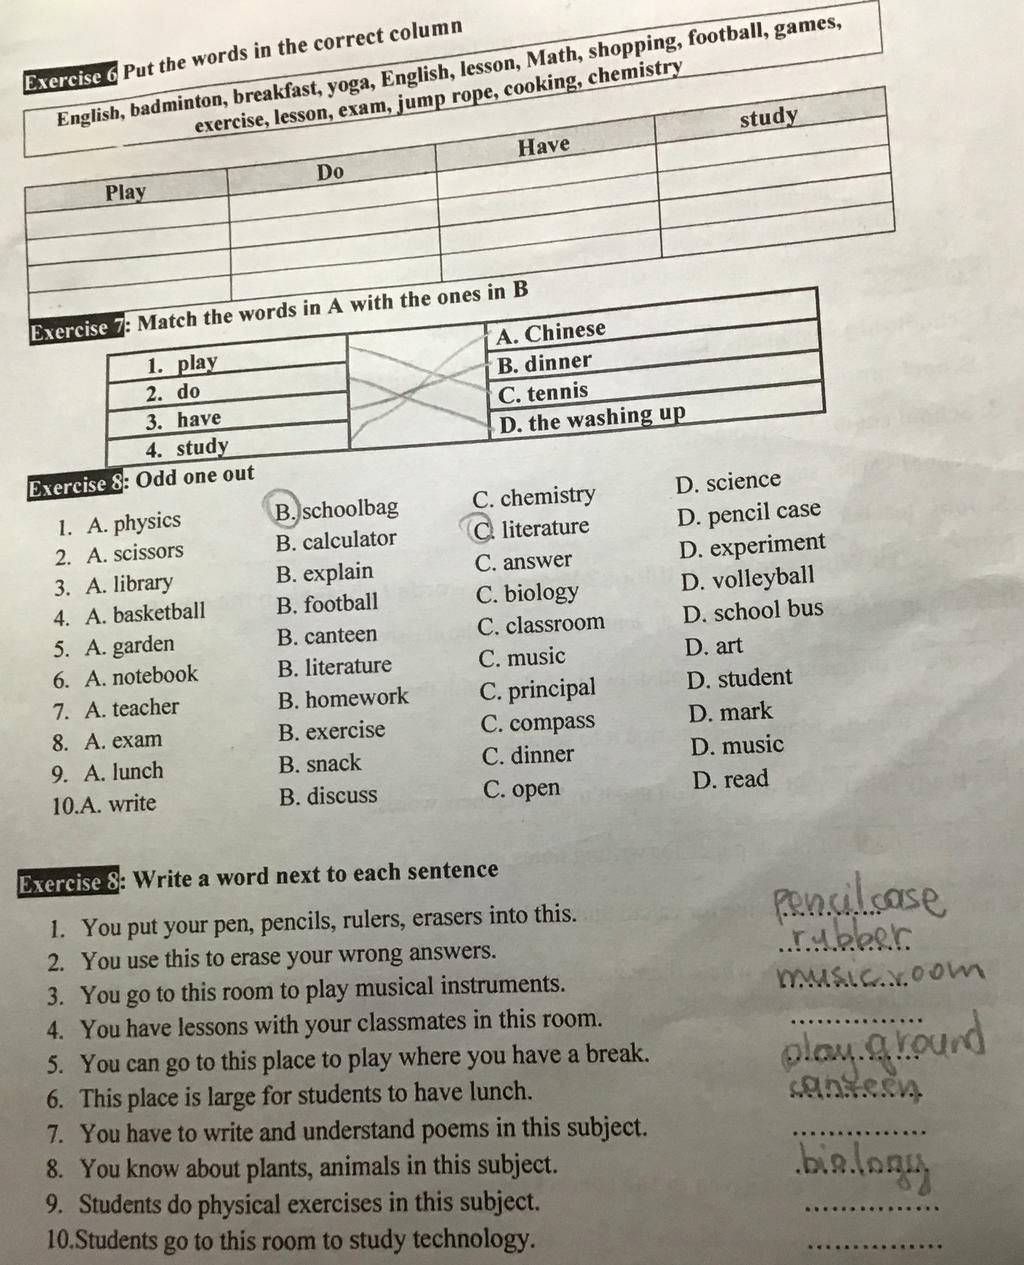 Exercise 6 Put the words in the correct column
English, badminton, breakfast, yoga, English, lesson, Math, shopping, football, games,
exercise, lesson, exam, jump rope, cooking, chemistry
Play Do Have study
Exercise 7: Match the words in A with the ones in B
1. play A. Chinese
2. do B. dinner
3. have C. tennis
4. study D. the washing up
Exercise 8: Odd one out
1. A. physics B. schoolbag C. chemistry D. science
2. A. scissors B. calculator C. literature D. pencil case
3. A. library B. explain C. answer D. experiment
4. A. basketball B. football C. biology D. volleyball
5. A. garden B. canteen C. classroom D. school bus
6. A. notebook B. literature C. music D. art
7. A. teacher B. homework C. principal D. student
8. A. exam B. exercise C. compass D. mark
9. A. lunch B. snack C. dinner D. music
10.A. write B. discuss C. open D. read
Exercise 8: Write a word next to each sentence
1. You put your pen, pencils, rulers, erasers into this. pencil case
2. You use this to erase your wrong answers. rubber
3. You go to this room to play musical instruments. music room
4. You have lessons with your classmates in this room. ...............
5. You can go to this place to play where you have a break. play ground
6. This place is large for students to have lunch. canteen
7. You have to write and understand poems in this subject. ...............
8. You know about plants, animals in this subject. biology
9. Students do physical exercises in this subject. ...............
10.Students go to this room to study technology. ...............